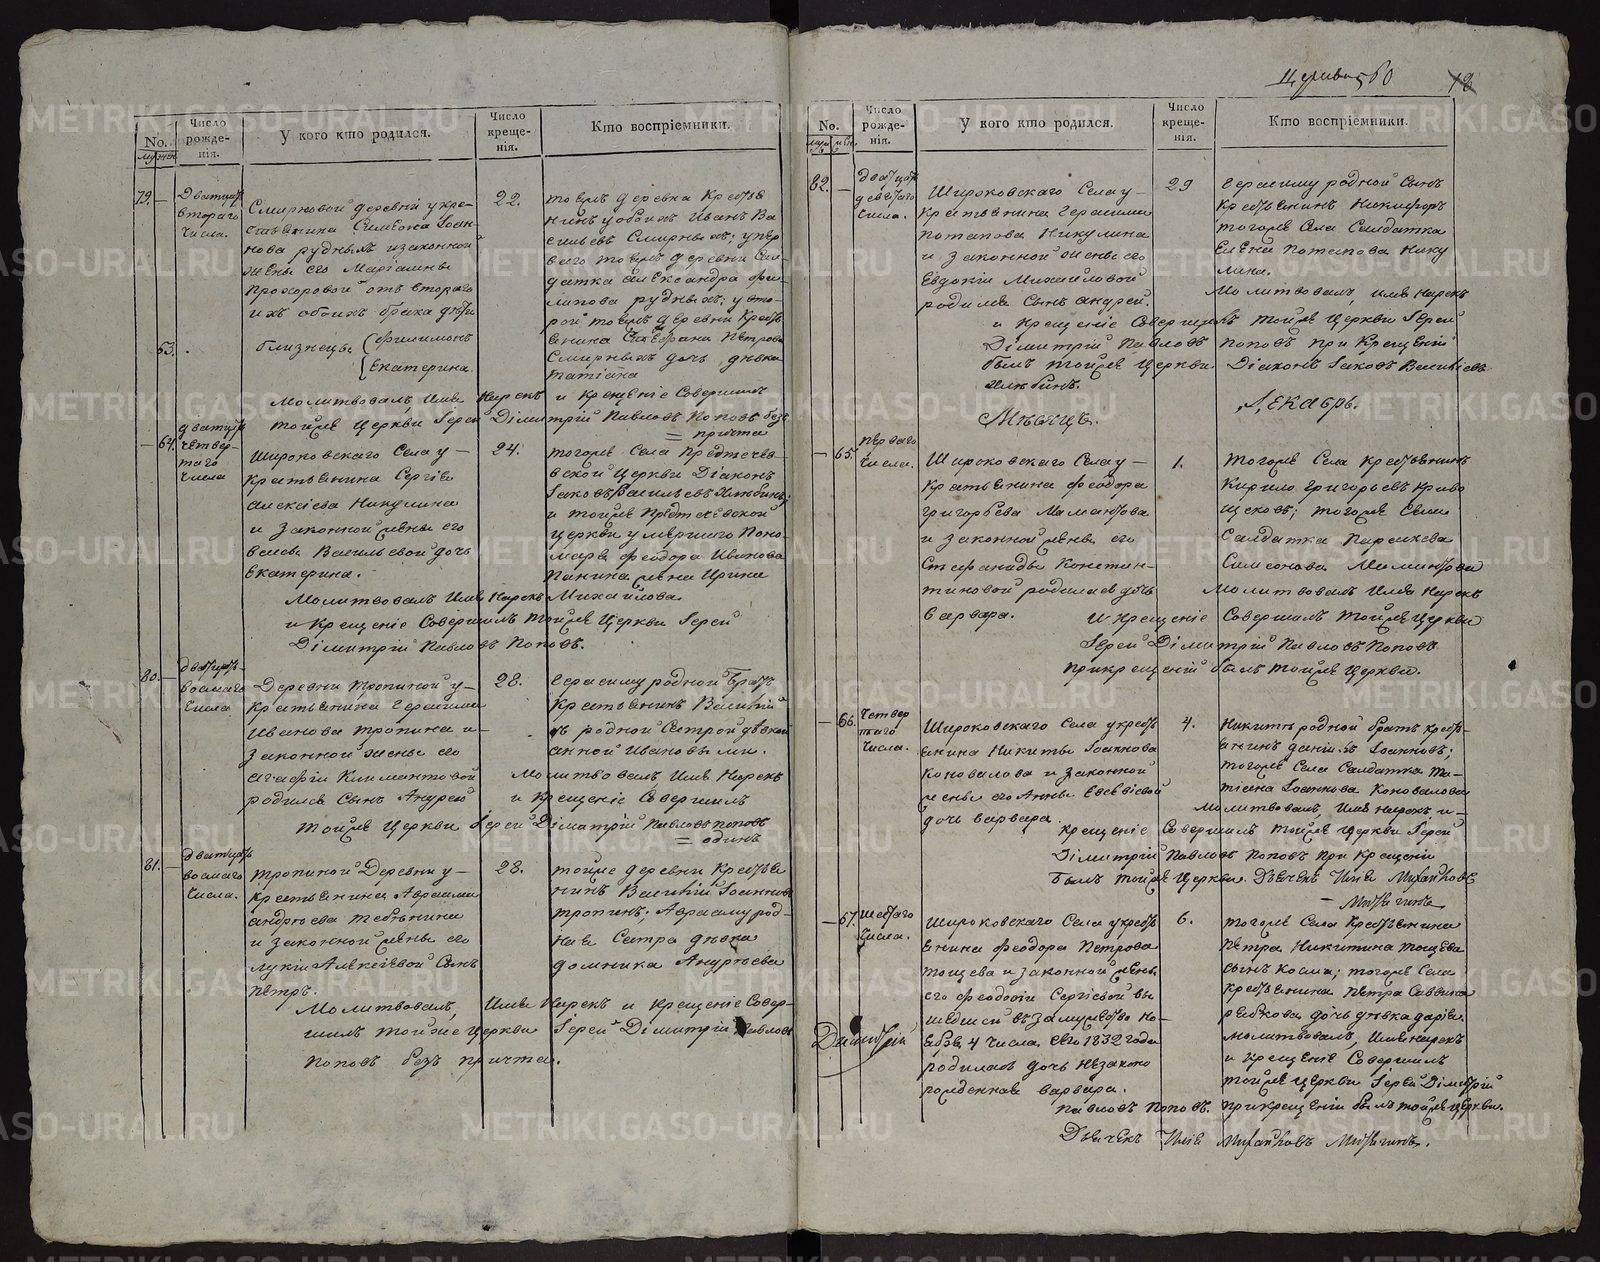 No.
муж жен
Число рожде-нія.
У кого кто родился.
Число креще-нія.
Кто воспріемники.
79. —
Двадцать
втораго
числа.
Смирновой деревни у кре-
стьянина Симеона Іоан-
нова рудныхъ и законной
жены его Маріамны
Прохоровой отъ втораго
ихъ обоихъ брака дѣти
63.
близнецы (Филимонъ
(Екатерина.
22.
тояже деревни Крестья
нинъ у обоихъ Иванъ Ва
сильевъ Смирныхъ; у пер
ваго тояже деревни Сал-
датка Александра Фи-
липова рудныхъ; у вто-
рой тояже деревни Кресть
янина Стефана Петрова
Смирныхъ дочь дѣвка
татіана
Молитвовалъ, имя нарекъ и крещеніе совершилъ
тойже Церкви Іерей Дімитрій Павловъ Поповъ безъ
= причта
— 64.
двадцать
четвер-
таго
числа
Широковскаго Села у —
Крестьянина Сергія
Алексіева Никулина
и законной жены его
Васильевой дочь
Екатерина.
24.
тогоже Села Предтечев-
ской Церкви Діаконъ
Іаковъ Васильевъ Хлыбинъ;
и тойже Предтечевской
церкви умершаго Поно-
маря Феодора Иванова
Панина жена Ирина
Михайлова.
Молитвовалъ имя нарекъ
и крещеніе совершилъ тойже Церкви Іерей
Дімитрій Павловъ Поповъ.
80. —
двадцать
восмаго
числа
Деревни тропиной у —
крестьянина Герасима
Иванова тропина и
законной жены его
Агафіи Климантовой
родился сынъ Андрей
28.
Герасиму родной братъ
Крестьянинъ Василій
съ родной сестрой дѣвкой
Анной Ивановыми.
Молитвовалъ имя нарекъ
и крещеніе совершилъ
тойже Церкви Іерей Дімитрій Павловъ Поповъ
= одинъ
81. —
двадцать
восмаго
числа.
тропиной Деревни у —
крестьянина Авраама
Андреева
и законной жены его
лукіи Алексіевой сынъ
Петръ.
28.
тойже деревни Крестья
нинъ Василій Іоанновъ
тропинъ; Аврааму род-
ная сестра дѣвка
домника Андреева
Молитвовалъ, имя нарекъ и крещеніе совер-
шилъ тойже церкви Іерей Дімитрій Павловъ
Поповъ безъ причта.
60
12
No.
Число рожде-нія.
У кого кто родился.
Число креще-нія.
Кто воспріемники.
82. —
двадцать
девятаго
числа.
Широковскаго Села у —
Крестьянина Герасима
Потапова Никулина
и законной жены его
Евдокіи Михайловой
родился сынъ Андрей.
29
Герасиму родной сынъ
Крестьянинъ Никифоръ
тогоже Села Салдатка
Елена Потапова Нику
лина.
Молитвовалъ, имя нарекъ
и крещеніе совершилъ тойже Церкви Іерей
Дімитрій Павловъ Поповъ при крещеніи
былъ тойже Церкви Діаконъ Іаковъ Васильевъ
Хлыбинъ.
Мѣсяцъ. Декабрь.
— 65.
перваго
числа.
Широковскаго Села у —
Крестьянина Феодора
Григорьева Мамантова
и законной жены его
Стефаниды Констан-
тиновой родилась дочь
варвара.
1.
тогоже Села Крестьянинъ
Кирило Григорьевъ Криво
щековъ; тогоже Села
Салдатка Параскева
Симеонова Мамантова
Молитвовалъ имя нарекъ
и крещеніе совершилъ тойже Церкви
Іерей Дімитрій Павловъ Поповъ
при крещеніи былъ тойже Церкви.
— 66.
Четвер
таго
числа.
Широковскаго Села у кресть
янина Никиты Іоаннова
Коновалова и законной
жены его Анны Евсевіевой
дочь варвара.
4.
Никиты родной братъ кресть-
янинъ Даніилъ Іоанновъ;
тогоже Села Салдатка та-
тіана Іоаннова Коновалова
Молитвовалъ, имя нарекъ и —
крещеніе совершилъ тойже Церкви Іерей
Дімитрій Павловъ Поповъ при крещеніи
былъ тойже Церкви Дьячекъ Илія Михайловъ
— 67.
шестаго
числа.
Широковскаго Села у кресть
янина Феодора Петрова
тощева и законной жены
его Феодосіи Сергіевой вы
шедшей въ замужство но-
ября 4 числа сего 1832 года
родилась дочь незакко
рожденная варвара.
6.
тогоже Села Крестьянина
Петра Никитина тощева
сынъ Косма; тогоже Села
крестьянина Петра Саввина
дочь дѣвка дарія.
молитвовалъ, имя нарекъ
и крещеніе совершилъ
тойже церкви Іерей Дімитрій
Павловъ Поповъ. при крещеніи былъ тойже церкви.
Дьячекъ Илія Михайловъ
Дімитрій